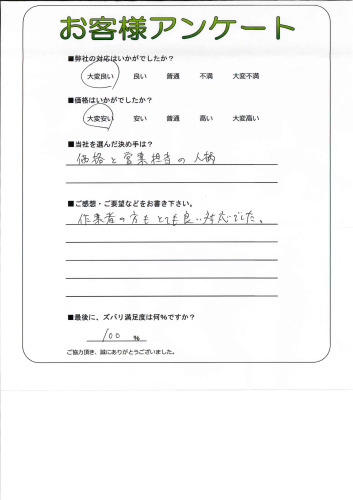 お客様アンケート
■弊社の対応はいかがでしたか？
大変良い 良い 普通 不満 大変不満
■価格はいかがでしたか？
大変安い 安い 普通 高い 大変高い
■当社を選んだ決め手は？
価格と営業担当の人柄
■ご感想・ご要望などをお書き下さい。
作業者の方もとても良い対応でした。
■最後に、ズバリ満足度は何%ですか？
100 %
ご協力頂き、誠にありがとうございました。